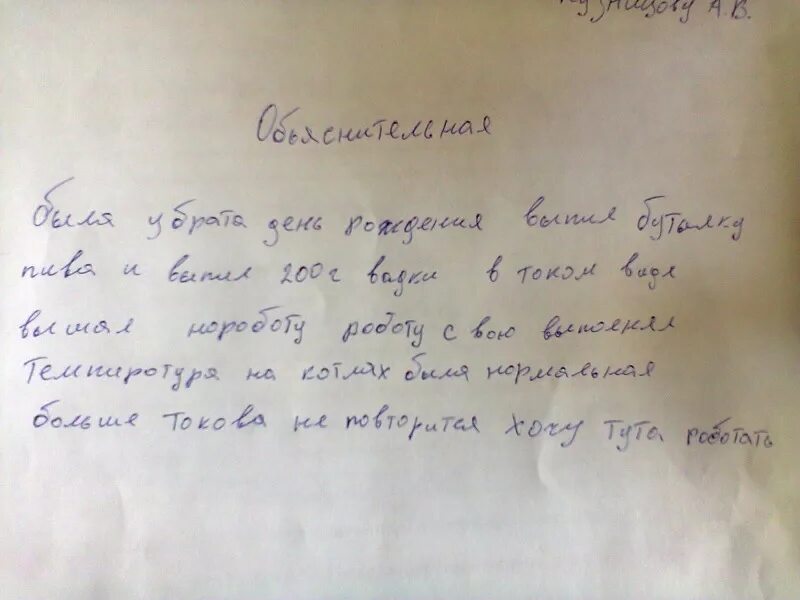 Кузницову А.В.
Обьяснительная
быля у брата день рождения выпил буталку
пива и выпил 200г вадки в током видя
вышал нороботу роботу с вою выполнял
Темпиротура на котлах была нормальная
больше токова не повторится хочу тута роботать